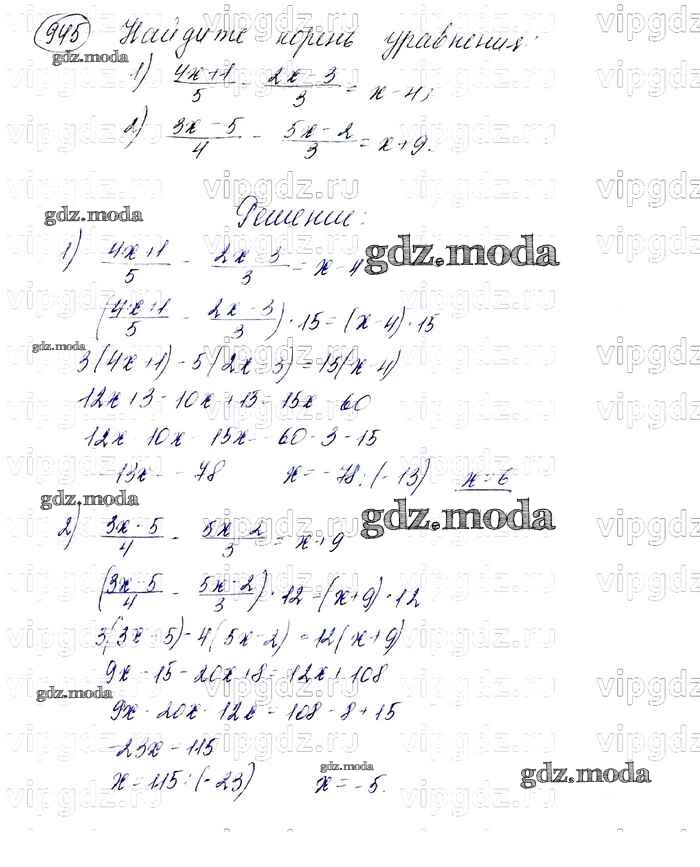 945 Найдите корень уравнения:
gdz.moda
1) (4x+1)/5 - (2x-3)/3 = x-4;
2) (3x-5)/4 - (5x-2)/3 = x+9.
vipgdz.ru
gdz.moda
Решение:
1) (4x+1)/5 - (2x-3)/3 = x-4
gdz.moda
((4x+1)/5 - (2x-3)/3)·15=(x-4)·15
gdz.moda
3(4x+1)-5(2x-3)=15(x-4)
12x+3-10x+15=15x-60
12x-10x-15x=-60-3-15
-13x=-78 x=-78:(-13) x=6
gdz.moda
2) (3x-5)/4 - (5x-2)/3 = x+9
gdz.moda
((3x-5)/4 - (5x-2)/3)·12=(x+9)·12
3(3x-5)-4(5x-2)=12(x+9)
9x-15-20x+8=12x+108
gdz.moda
9x-20x-12x=108-8+15
-23x=115
x=115:(-23) x=-5.
gdz.moda
gdz.moda